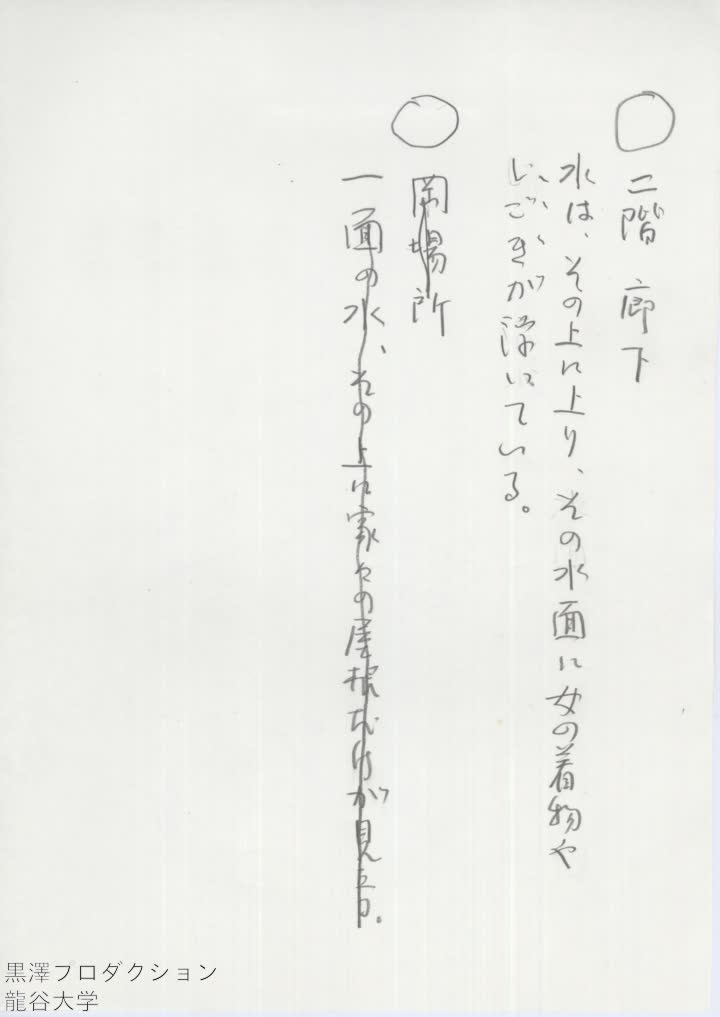 ○二階 廊下
水は、その上に上り、その水面に女の着物や
しごきが浮いている。
○岡場所
一面の水、その上に家々の屋根だけが見える。
黒澤プロダクション
龍谷大学